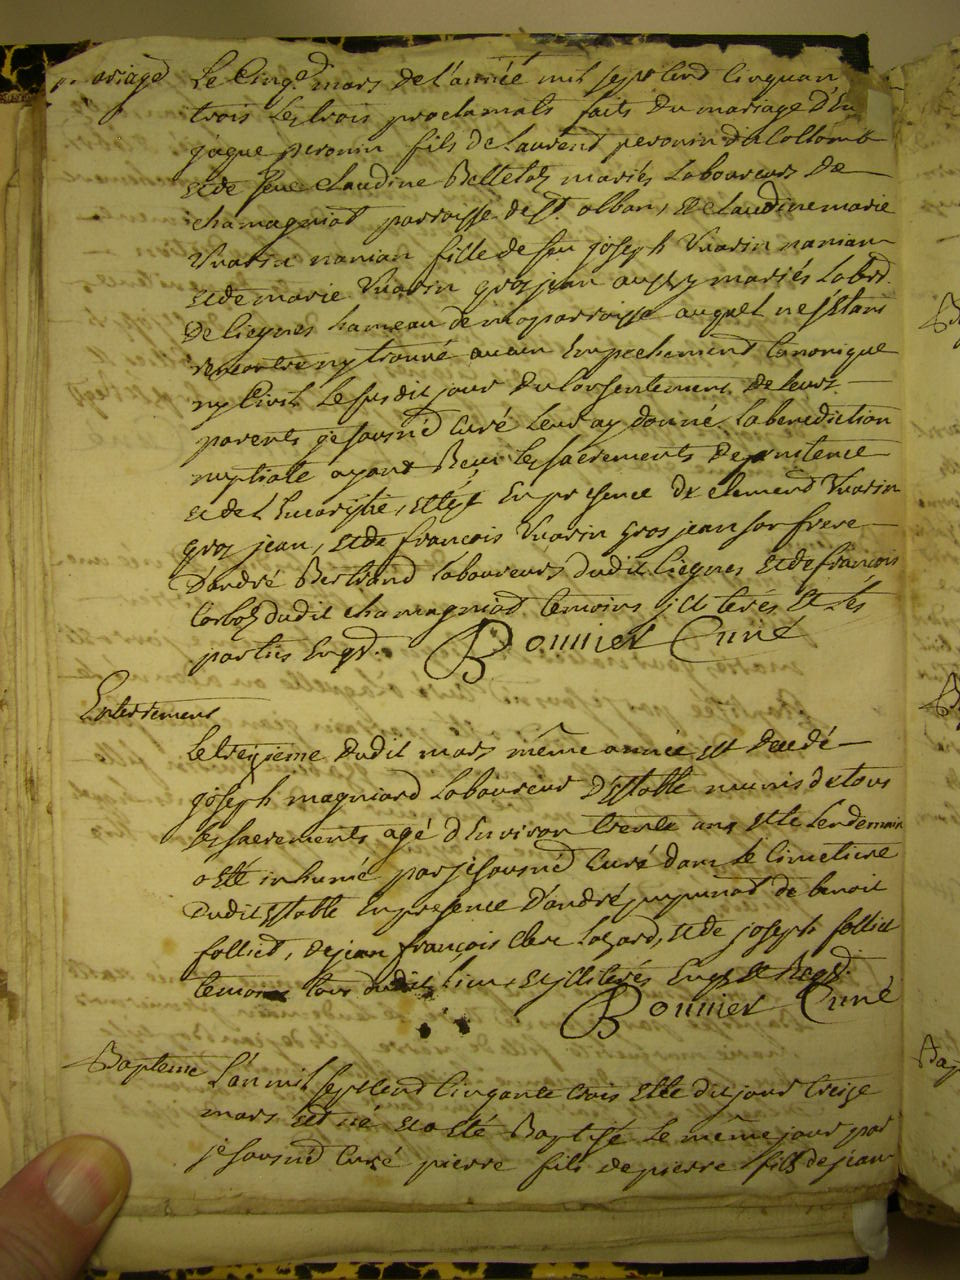 mariage
Le Cinqe mars de l'année mil sept cend Cinquan
trois Les trois proclamats faits du mariage d'En
jaque peronin fils de Laurent peronin du Collomb
et de feue claudine mariés Laboureurs De
chamagniod parroisse de St. alban, et de Claudine marie
Vuarin nanian fille de feu joseph Vuarin nanian
et de marie Vuarin gros jean aussy mariés Labrs.
De Liegnes hameau de ma parroisse auquel ne s'Etans
ny trouvé aucun Empechement Canonique
ny Civil Le susdit jour du Consentement De leurs
parents je sousné Curé Leur ay donné La benediction
nuptiale ayant Les sacrements De penitence
et de l'Eucaristie, En presence De clemend Vuarin
gros jean, et de francois Vuarin gros jean son frere
D'andré Bertrand Laboureurs dudit Liegnes et de francois
dudit chamagniod temoins illiterés Et Les
parties Enqs. Bonnier Curé
Enterrement
Le treizieme dudit mars même année est decedé
joseph magniard Laboureur D'Etable munis de tous
les sacrements agé d'Environ trente ans et Le Lendemain
a Eté inhumé par je sousné Curé dans Le Cimetiere
Dudit Etable En presence D'andré de benoit
folliet, de jean françois Clerc Lazard, et de joseph folliet
temoins tous dudit Lieu, et illiterés Enqs et Reqs.
Bonnier Curé
Bapteme L'an mil sept cend Cinqante trois et Le dit jour treize
mars est né et a Eté Baptisé Le même jour par
je sousné Curé pierre fils de pierre fils de jean